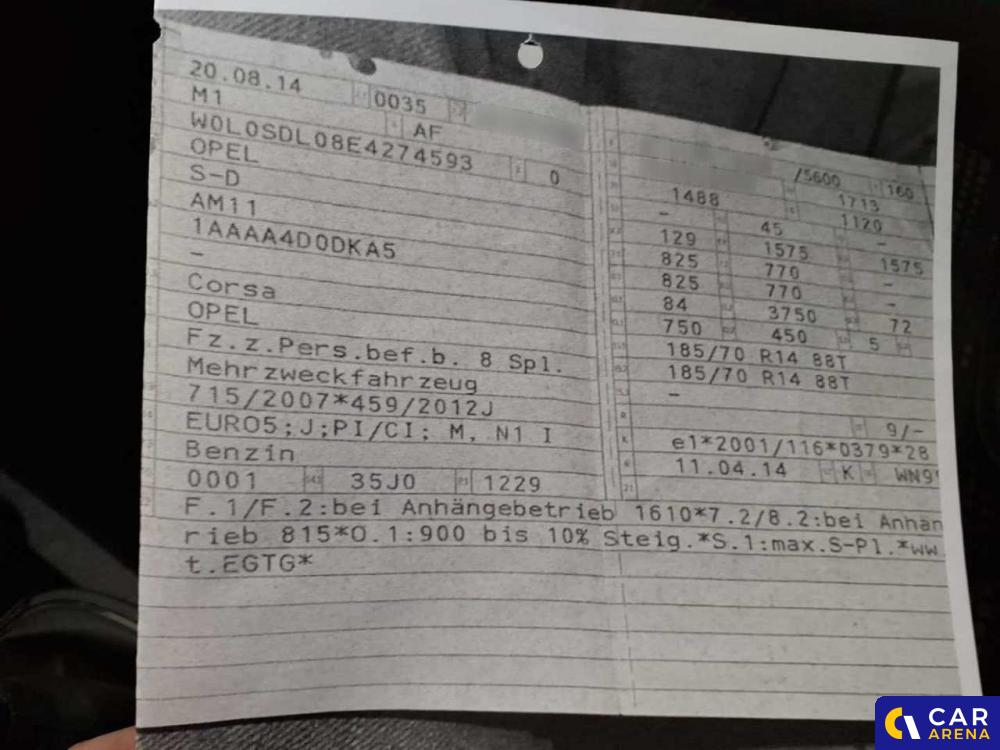 20.08.14 0035
M1 AF
W0L0SDL08E4274593 0
OPEL
S-D
AM11
1AAAA4D0DKA5
–
Corsa
OPEL
Fz.z.Pers.bef.b. 8 Spl.
Mehrzweckfahrzeug
715/2007*459/2012J
EURO5;J;PI/CI; M, N1 I
Benzin
0001 35J0 1229
/5600 160
1488 1713
– 45 1120 –
129 1575 1575
825 770 –
825 770 –
84 3750 72
750 450 5
185/70 R14 88T
185/70 R14 88T
–
9/–
e1*2001/116*0379*28
11.04.14 K WN9
F.1/F.2:bei Anhängebetrieb 1610*7.2/8.2:bei Anhän
rieb 815*O.1:900 bis 10% Steig.*S.1:max.S-Pl.*ww.
t.EGTG*
CAR
ARENA